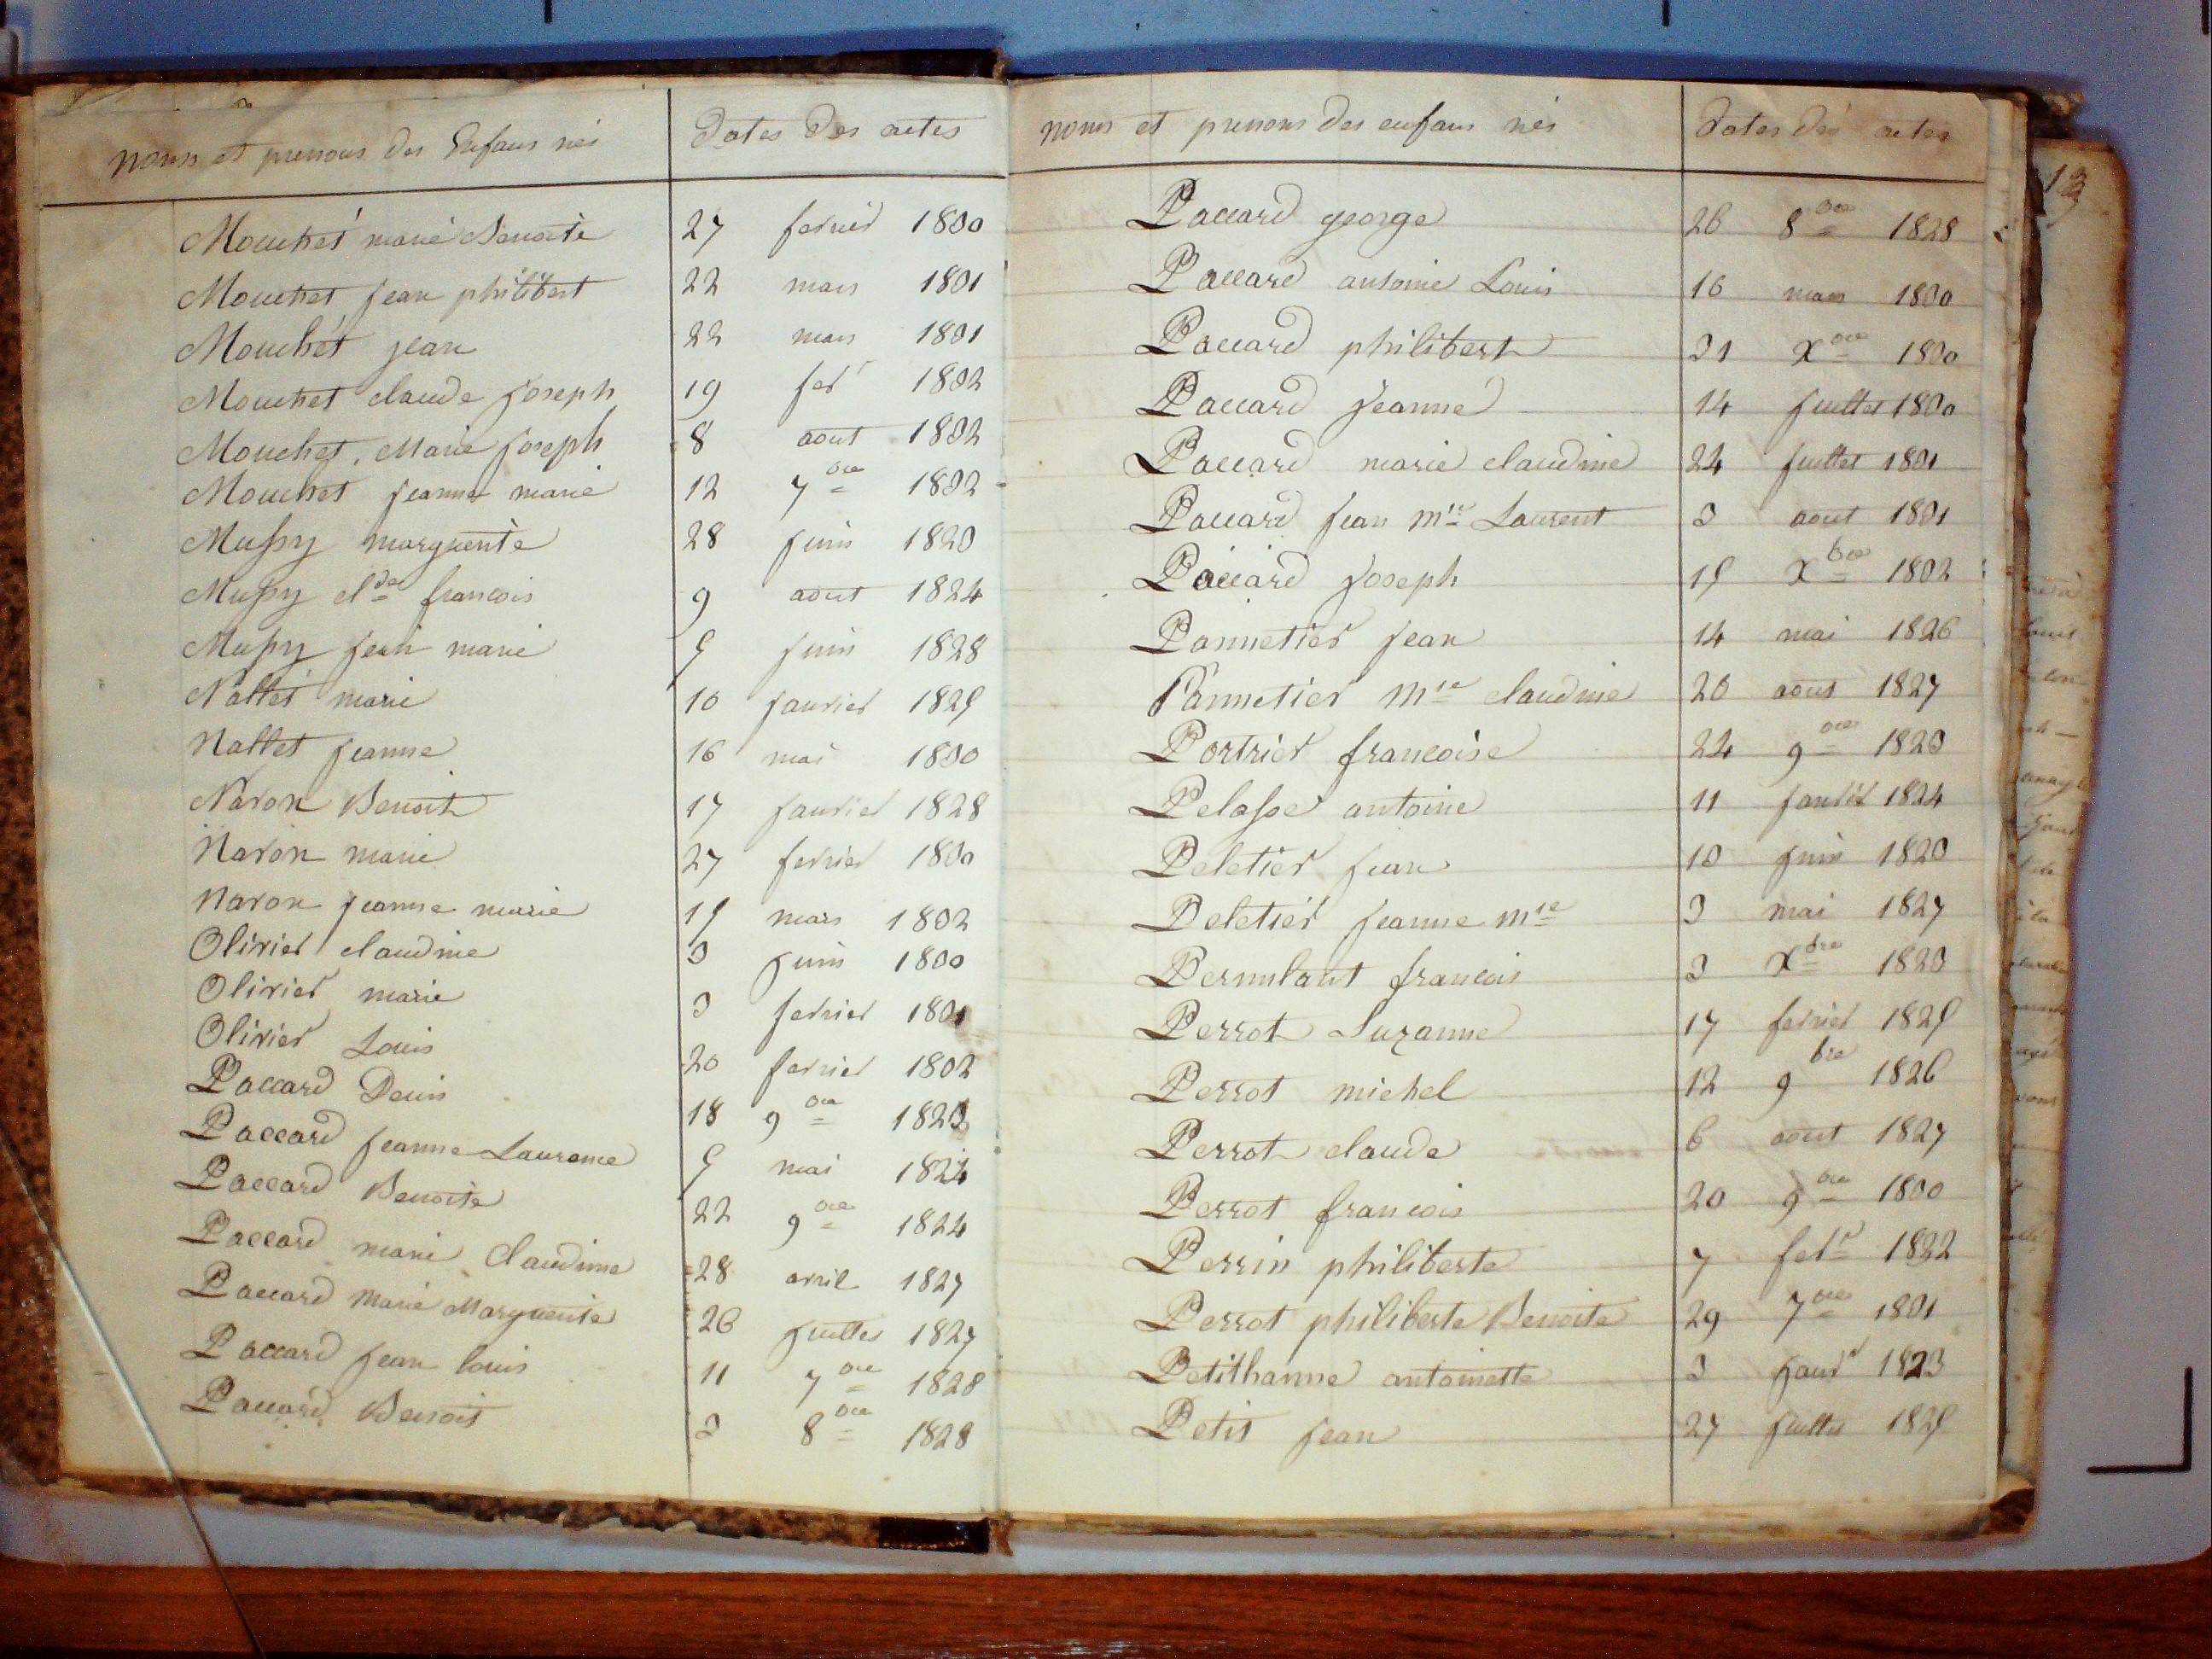 noms et prenoms des Enfans nés Dates Des actes
Mouchet marie Benoite 27 fevrier 1830
Mouchet jean philibert 22 mars 1831
Mouchet jean 22 mars 1831
Mouchet claude joseph 19 fev 1832
Mouchet Marie joseph 8 aout 1832
Mouchet jeanne marie 12 7bre 1832
Mussy marguerite 28 juin 1823
Mussy clde francois 9 aout 1824
Mussy jean marie 5 juin 1828
Nallet marie 10 janvier 1825
Nallet jeanne 16 mai 1830
Navon Benoit 17 janvier 1828
Navon marie 27 fevrier 1830
Navon jeanne marie 15 mars 1832
Olivier claudine 3 juin 1830
Olivier marie 3 fevrier 1831
Olivier Louis 20 fevrier 1832
Paccard Denis 18 9bre 1823
Paccard jeanne Laurence 5 mai 1824
Paccard Benoite 22 9bre 1824
Paccard marie Claudine 28 avril 1827
Paccard Marie Marguerite 26 juillet 1827
Paccard jean louis 11 7bre 1828
Paccard Benoit 3 8bre 1828
noms et prenoms des enfans nés Dates des actes
Paccard george 26 8bre 1828
Paccard antoine Louis 16 mars 1830
Paccard philibert 31 xbre 1830
Paccard jeanne 14 juillet 1830
Paccard marie claudine 24 juillet 1831
Paccard jean mie Laurent 3 aout 1831
Paccard joseph 15 xbre 1832
Pannetier jean 14 mai 1826
Pannetier mie claudine 26 aout 1827
Portrier francoise 24 9bre 1823
Pelasse antoine 11 janvier 1824
Peletier jean 13 juin 1823
Peletier jeanne mie 3 mai 1827
Pernulant francois 3 xbre 1823
Perrot Suzanne 17 fevrier 1825
Perrot michel 12 9bre 1826
Perrot claude 6 aout 1827
Perrot francois 20 9bre 1830
Perrin philiberte 7 fevr 1832
Perrot philiberte Benoite 29 7bre 1831
Petithanne antoinette 3 janvr 1823
Petit jean 27 juillet 1825
13